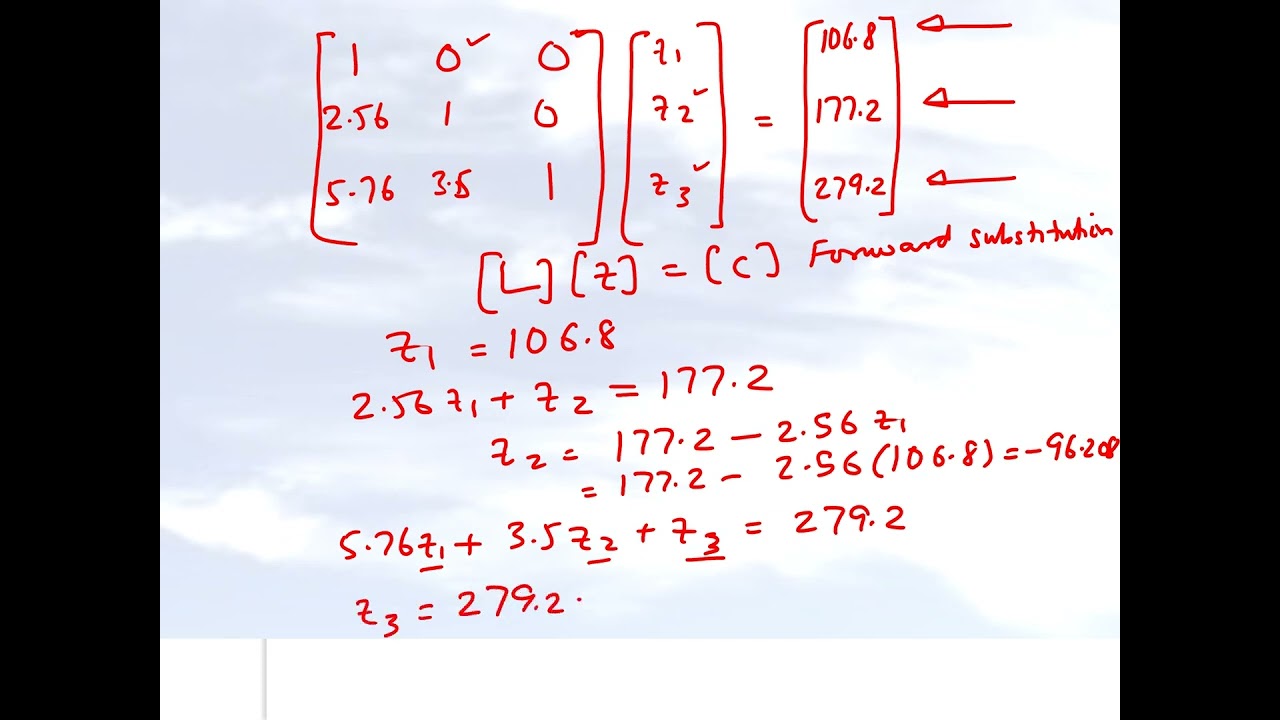 [1 0✓ 0] [z1] = [106.8] ←
[2.56 1 0] [z2✓] = [177.2] ←
[5.76 3.5 1] [z3✓] = [279.2] ←
[L][z] = [c] Forward substitution
z1 = 106.8
2.56 z1 + z2 = 177.2
z2 = 177.2 - 2.56 z1
= 177.2 - 2.56 (106.8) = -96.208
5.76z1 + 3.5z2 + z3 = 279.2
z3 = 279.2 -